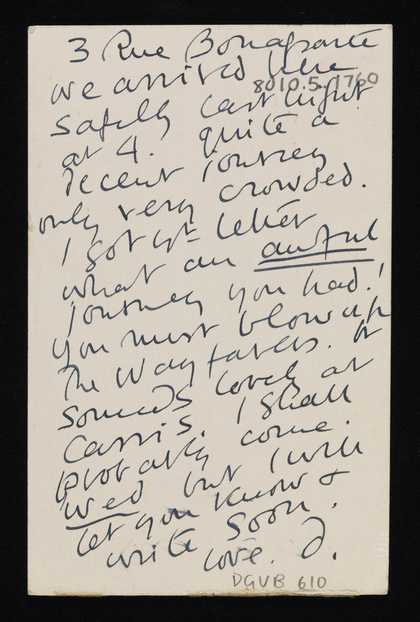 3 Rue Bonaparte
we arrived here
8010.5.1760
safely last night
at 4. quite a
decent journey
only very crowded.
I got yr letter
what an awful
journey you had!
you must blow up
the Wayfarers. It
sounds lovely at
Cassis. I shall
probably come
Wed but I will
let you know &
write soon.
love. D.
DGVB 610